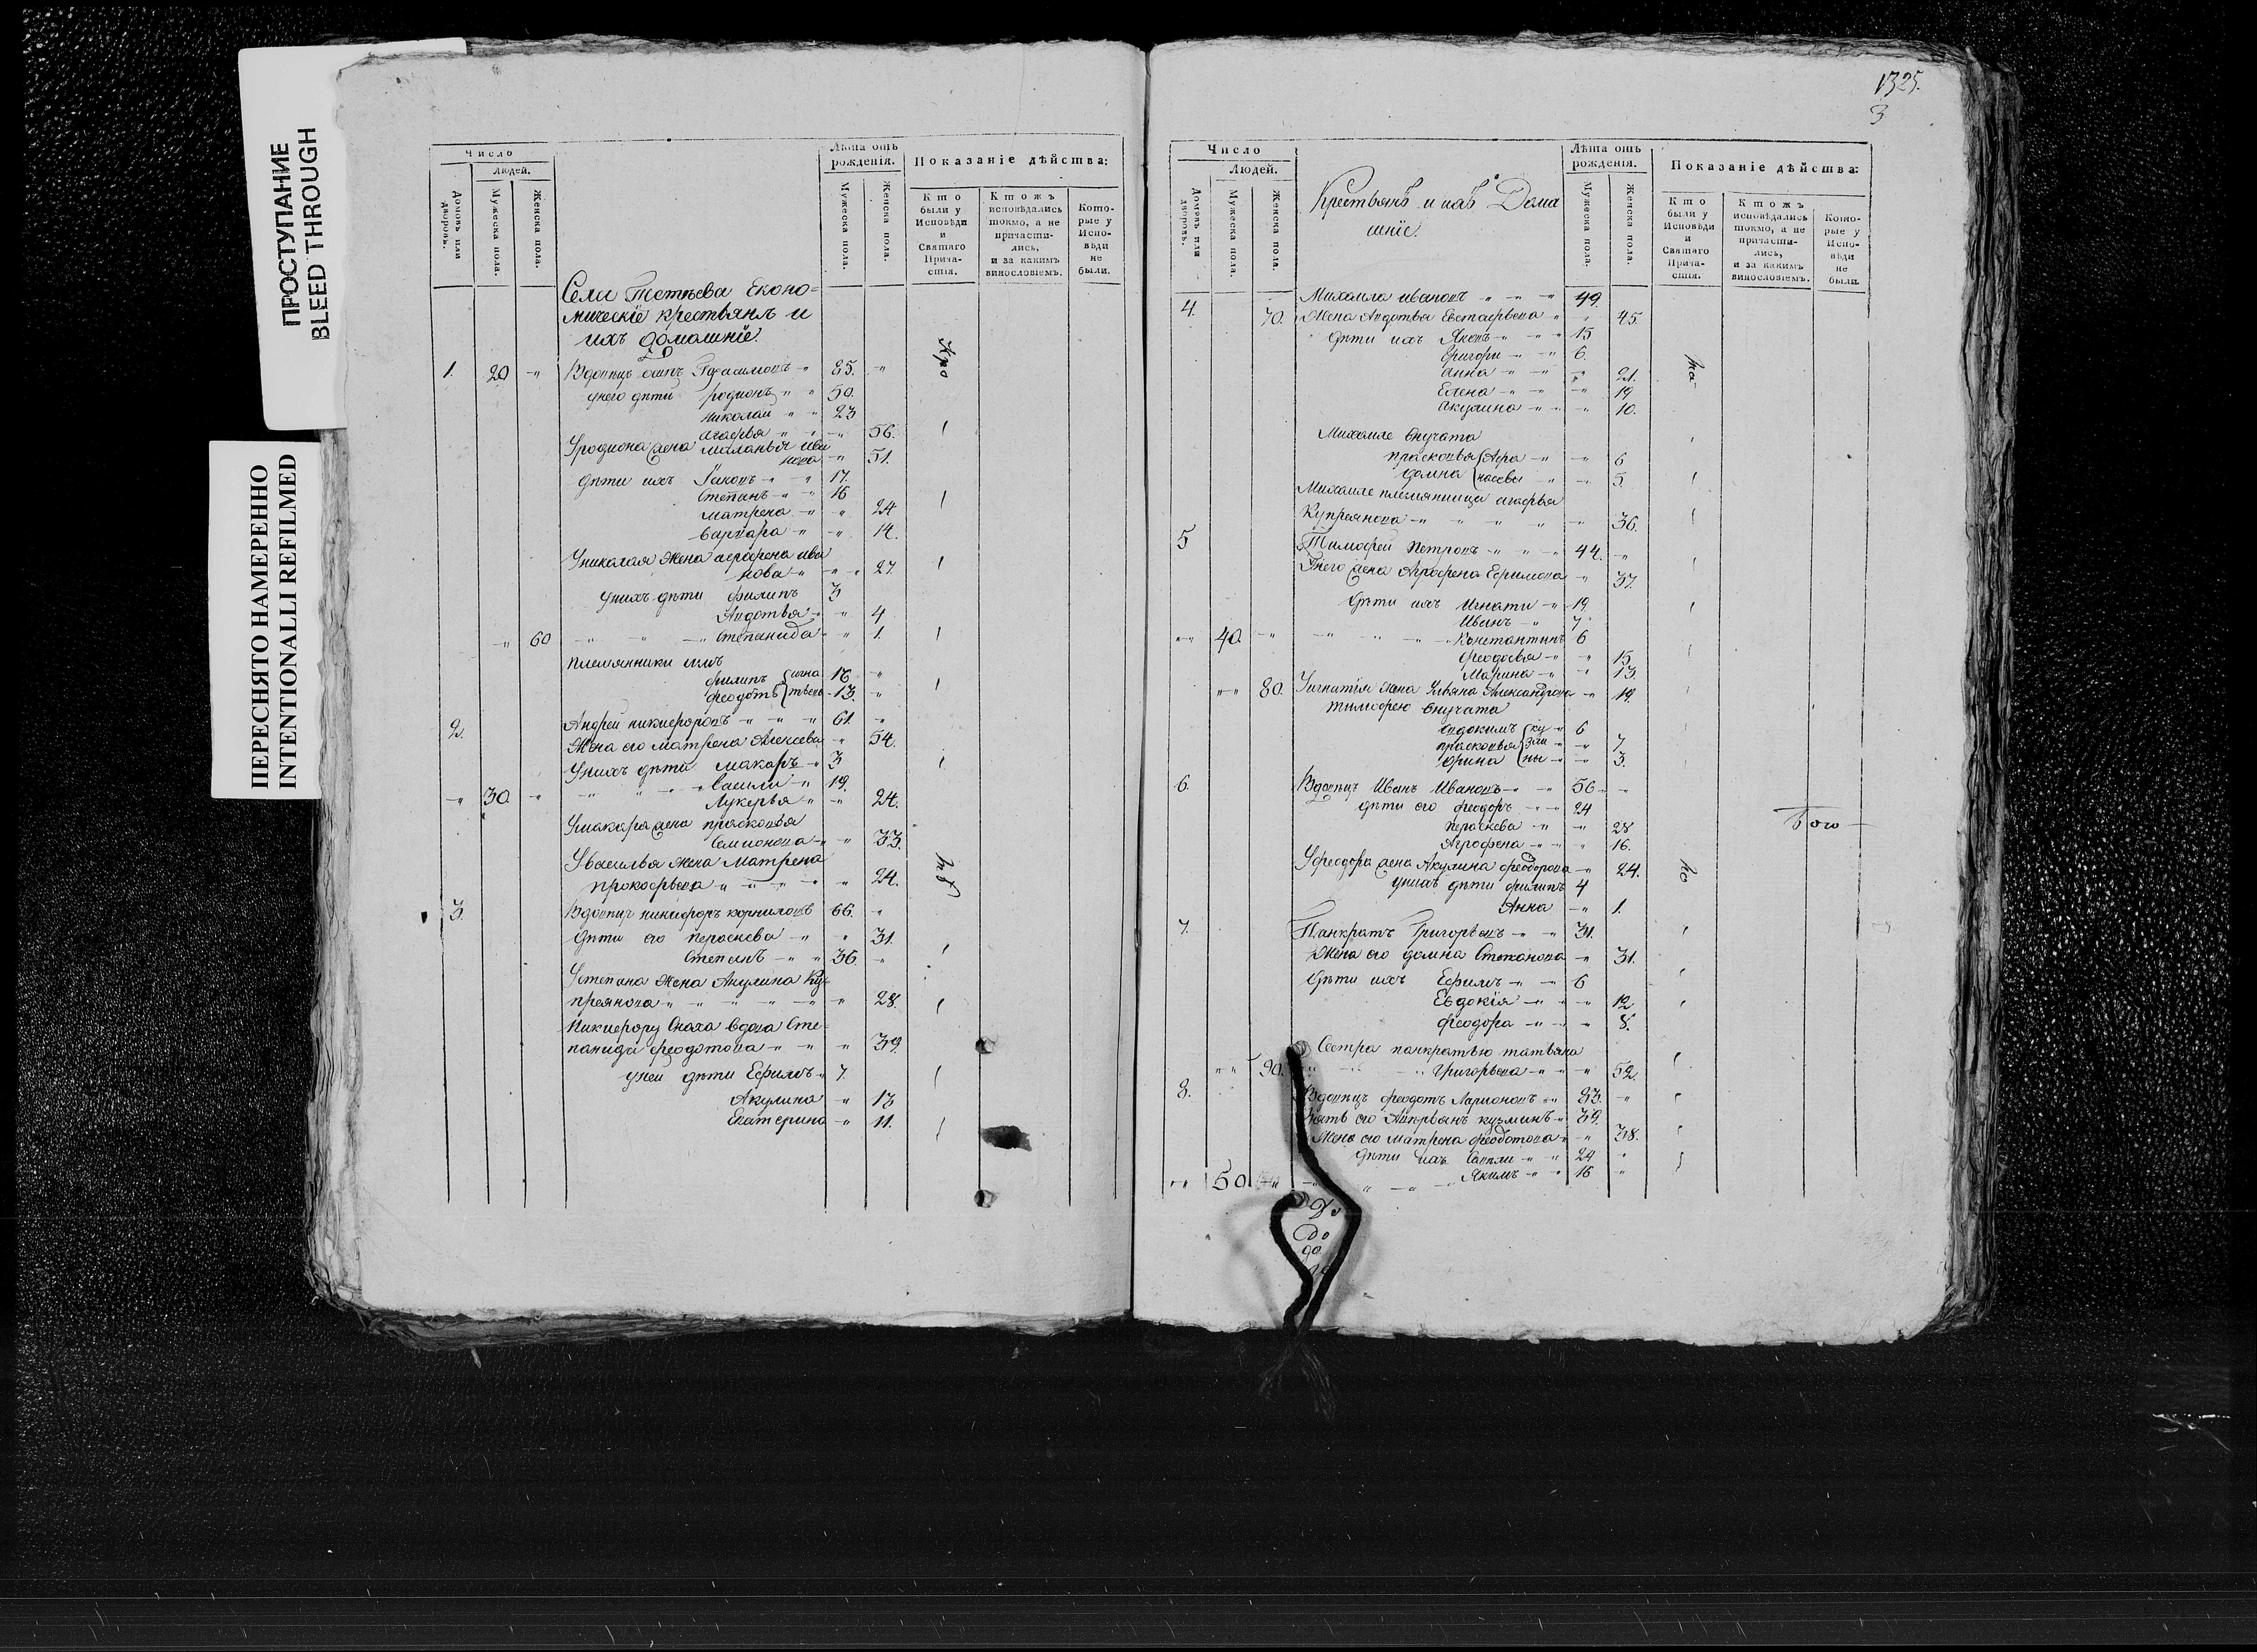 ПРОСТУПАНИЕ
BLEED THROUGH
ПЕРЕСНЯТО НАМЕРЕННО
INTENTIONALLI REFILMED
Число
Домовъ или дворовъ.
Людей.
Мужеска пола.
Женска пола.
Лѣта отъ рожденія.
Мужеска пола.
Женска пола.
Показаніе дѣйства:
Кто были у Исповѣди и Святаго Прича-стія.
Ктожъ исповѣдались токмо, а не причасти-лись, и за какимъ винословіемъ.
Кото-рые у Испо-вѣди не были.
Села Тетѣева Еконо=
мическіе крестьянъ и
ихъ домашніе.
1. 20 Вдовецъ 85.
у него дѣти родионъ 50.
николаи 23
агафья 56.
У родиона жена маланья ива
нова 51.
дѣти ихъ Иаковъ 17.
Степанъ 16
матрена 24
варвара 14.
У николая жена аграфена ива
нова 27.
у нихъ дѣти филипъ 3
Авдотья 4
60 степанида 1.
племянники имъ
филипъ 16
феодотъ 13.
2. Андреи никифоровъ 61.
Жена его матрена Алексеева 54.
У нихъ дѣти макаръ 3
30. василии 19.
Лукерья 24.
У макара жена прасковья
Семионова 33.
У василья жена Матрена
прокофьева 24.
3. Вдовецъ никифоръ корниловъ 66.
дѣти его параскева 31.
Степанъ 36.
У степана жена Акулина Ку
преянова 28.
Никифору сноха вдова Сте
панида феодотова 39.
у неи дѣти Ефимъ 7.
Акулина 13
Екатерина 11.
1325.
3
Число
Домовъ или дворовъ.
Людей.
Мужеска пола.
Женска пола.
Крестьянъ и ихъ Дома
шніе.
Лѣта отъ рожденія.
Мужеска пола.
Женска пола.
Показаніе дѣйства:
Кто были у Исповѣди и Святаго Прича-стія.
Ктожъ исповѣдались токмо, а не причасти-лись, и за какимъ винословіемъ.
Кото-рые у Испо-вѣди не были.
4. Михаила ивановъ 49.
70. Жена Авдотья Евстафьева 45.
дѣти ихъ Яковъ 15
Григори 6.
анна 21.
Елена 19
акулина 10.
Михаиле внучата
прасковья 6
домна 5.
Михаиле племянница агафья
Купреянова 36.
5 Тимофеи Петровъ 44.
У него жена Аграфена Ефимова 37.
дѣти ихъ Игнати 19
Иванъ 7
40. Константинъ 6
феодосья 15
Марина 13.
80. У игнатія жена Ульяна Александрова 19.
тимофею внучата
евдокимъ 6
прасковья 7
орина 3.
6. Вдовецъ Иванъ Ивановъ 56
дѣти его феодоръ 24
параскева 28
Аграфена 16.
У феодора жена Акулина феодорова 24.
у нихъ дѣти филипъ 4
Анна 1.
7. Панкратъ Григорьевъ 31.
Жена его домна Степанова 31.
дѣти ихъ Ефимъ 6
Евдокія 12
феодора 8.
Сестра панкратью татьяна
90. Григорьева 52.
8. Вдовецъ феодотъ Ларионовъ 83.
Зять его кузминъ 39.
Жена его матрена феодотова 38.
дѣти ихъ 24
50 Якимъ 16